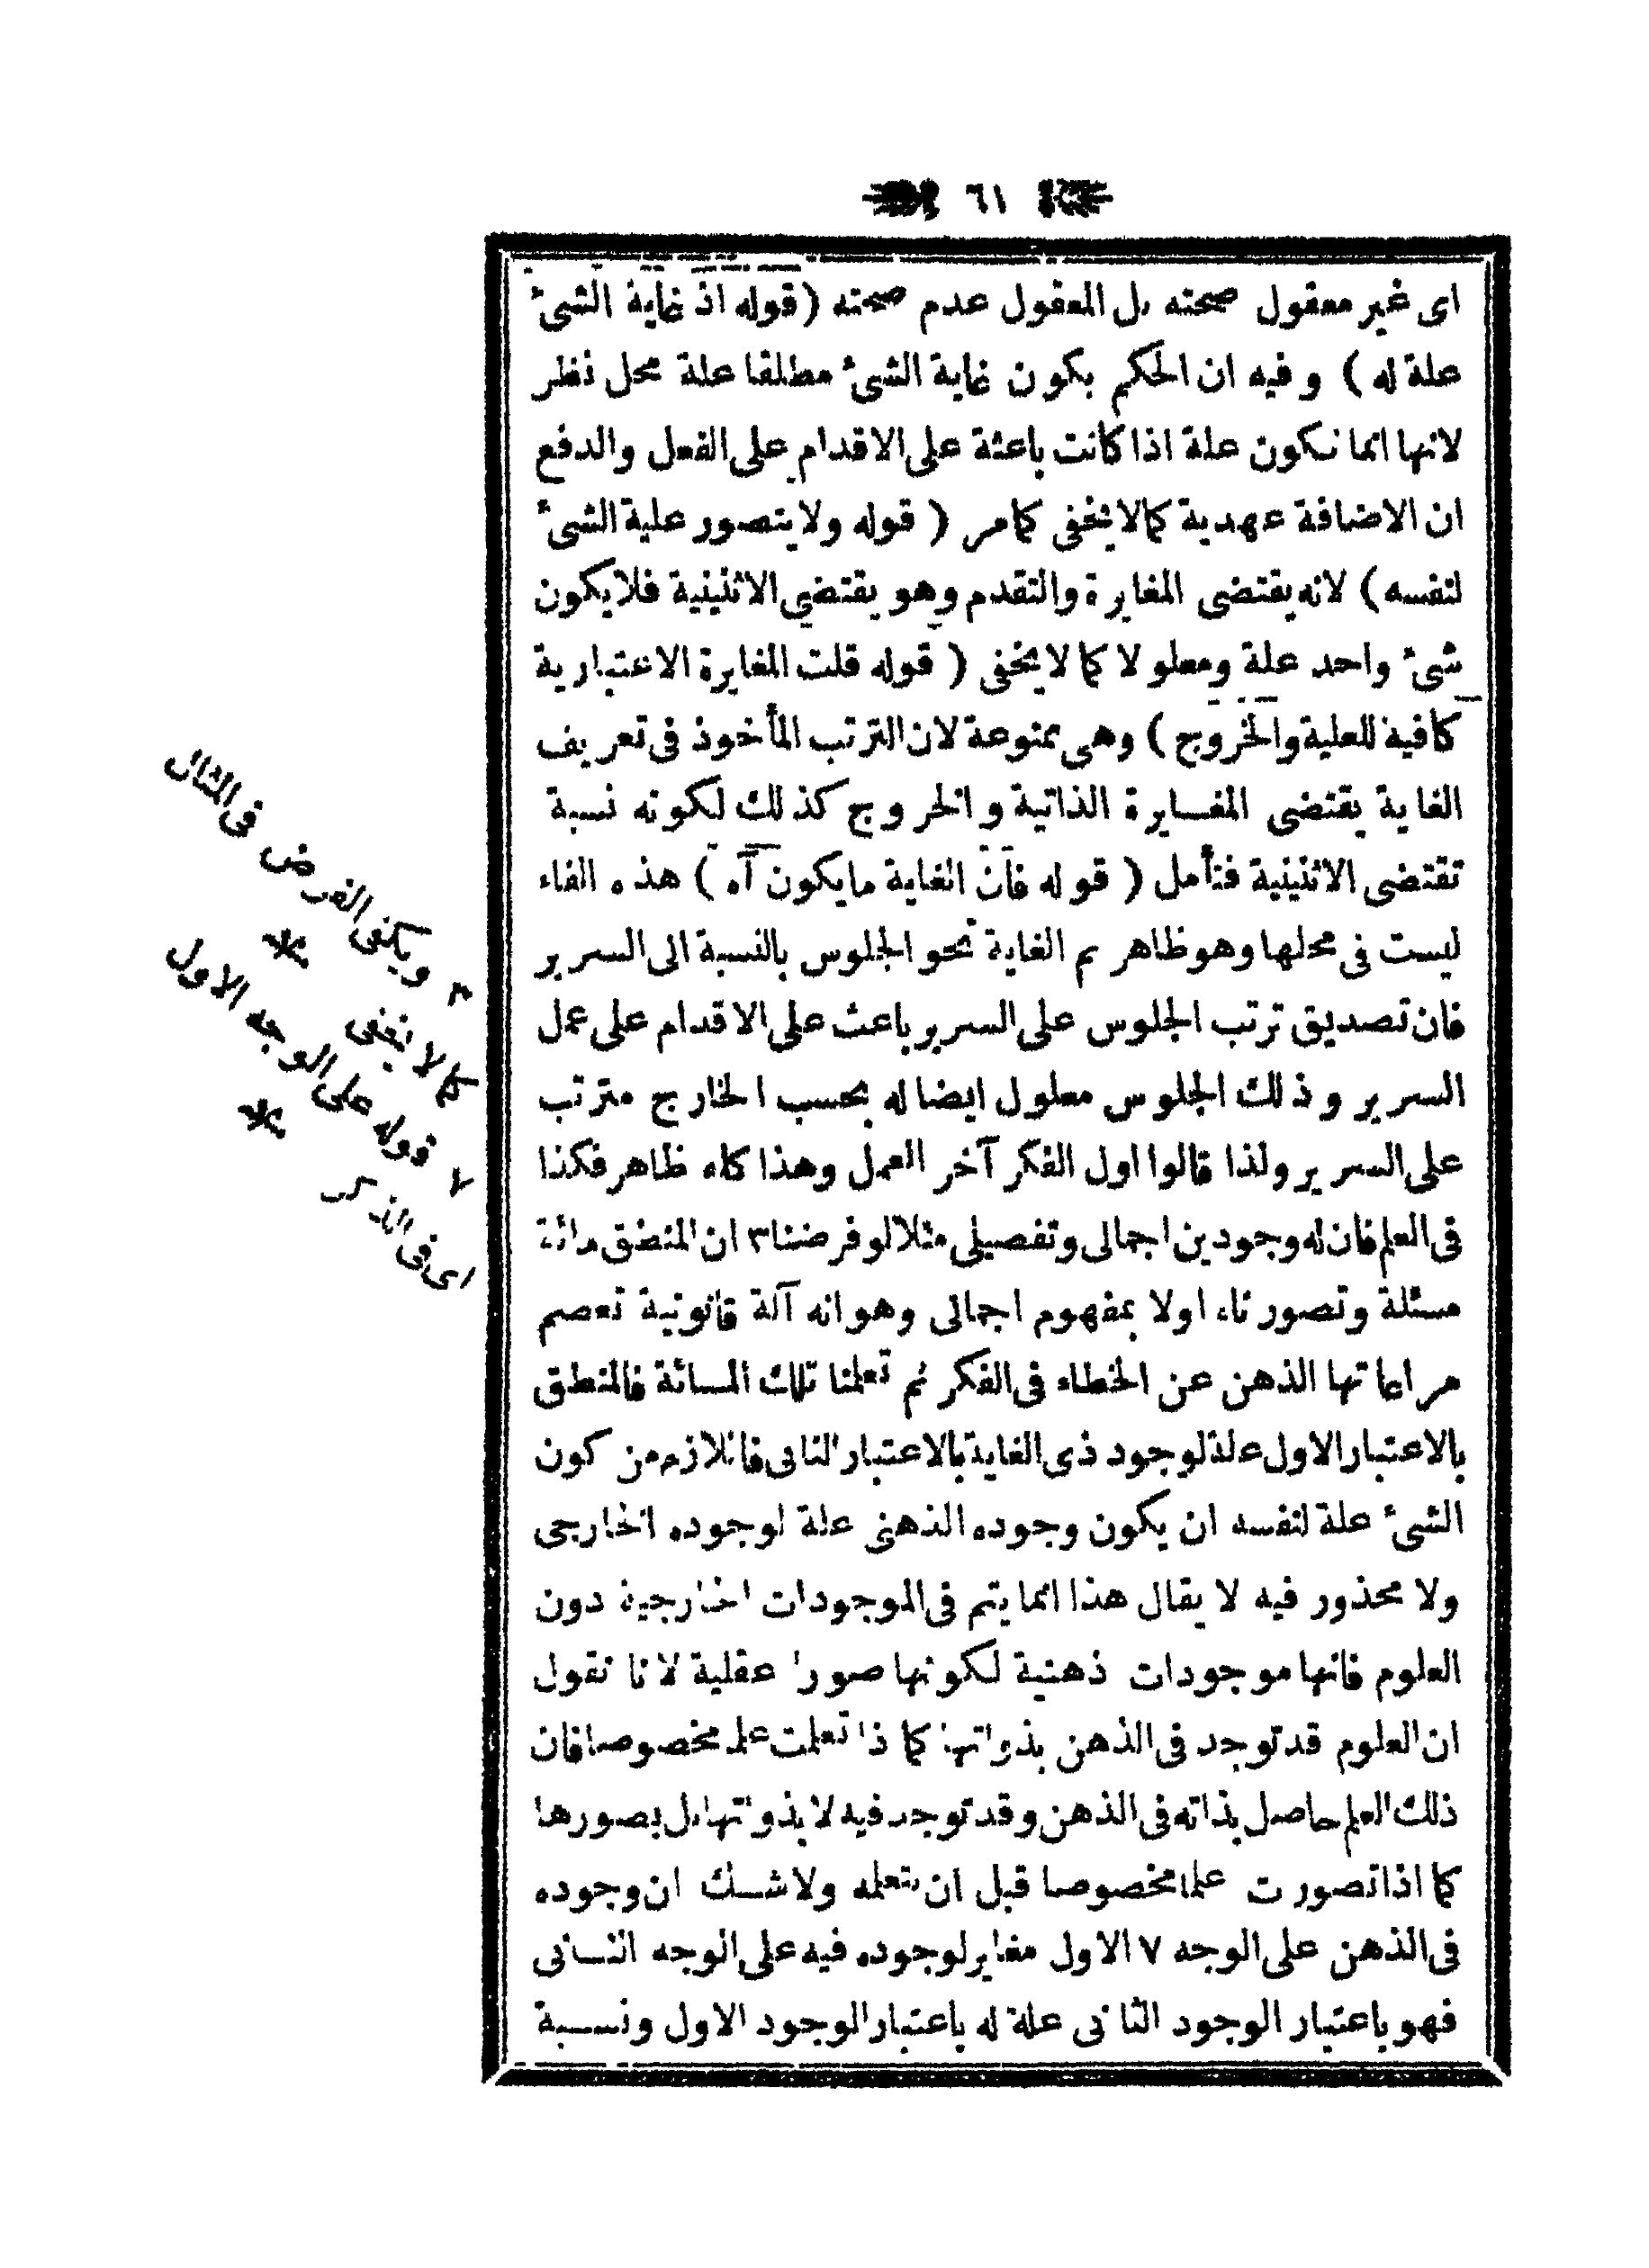 ٦١
اى غير معقول صحته بل المعقول عدم صحته ( قوله اذ غاية الشئ
علة له ) وفيه ان الحكم بكون غاية الشئ مطلقا علة محل نظر
لانها انما تكون علة اذا كانت باعثة على الاقدام على الفعل والدفع
ان الاضافة عهدية كمالايخفى كمامر ( قوله ولا يتصور علية الشئ
لنفسه ) لانه يقتضى المغايرة والتقدم وهو يقتضى الاثنينية فلايكون
شئ واحد علة ومعلولا كما لايخفى ( قوله قلت المغايرة الاعتبارية
كافية للعلية والخروج ) وهى ممنوعة لان الترتب المأخوذ فى تعريف
الغاية يقتضى المغايرة الذاتية والخروج كذلك لكونه نسبة
تقتضى الاثنينية فتأمل ( قوله فان الغاية مايكون آه ) هذه الفاء
ليست فى محلها وهو ظاهر ثم الغاية نحو الجلوس بالنسبة الى السرير
فان تصديق ترتب الجلوس على السرير باعث على الاقدام على عمل
السرير وذلك الجلوس معلول ايضا له بحسب الخارج مترتب
على السرير ولذا قالوا اول الفكر آخر العمل وهذا كله ظاهر فكذا
فى العلم فان له وجودين اجمالى وتفصيلى مثلا لو فرضنا ٣ ان المنطق مائة
مسئلة وتصورناه اولا بمفهوم اجمالى وهو انه آلة قانونية تعصم
مراعاتها الذهن عن الخطاء فى الفكر ثم تعلمنا تلك المسائة فالمنطق
بالاعتبار الاول علة لوجود ذى الغاية بالاعتبار الثانى فاللازم من كون
الشئ علة لنفسه ان يكون وجوده الذهنى علة لوجوده الخارجى
ولا محذور فيه لا يقال هذا انما يتم فى الموجودات الخارجية دون
العلوم فانها موجودات ذهنية لكونها صورا عقلية لانا نقول
ان العلوم قد توجد فى الذهن بذواتها كما اذا تعلمت علما مخصوصا فان
ذلك العلم حاصل بذاته فى الذهن وقد توجد فيه لا بذواتها بل بصورها
كما اذا تصورت علما مخصوصا قبل ان تتعلمه ولاشك ان وجوده
فى الذهن على الوجه ٧ الاول مغاير لوجوده فيه على الوجه الثانى
فهو باعتبار الوجود الثانى علة له باعتبار الوجود الاول ونسبة
٣ ويكفى الفرض فى المثال
كما لا يخفى
٧ قوله على الوجه الاول
اى فى الذكر